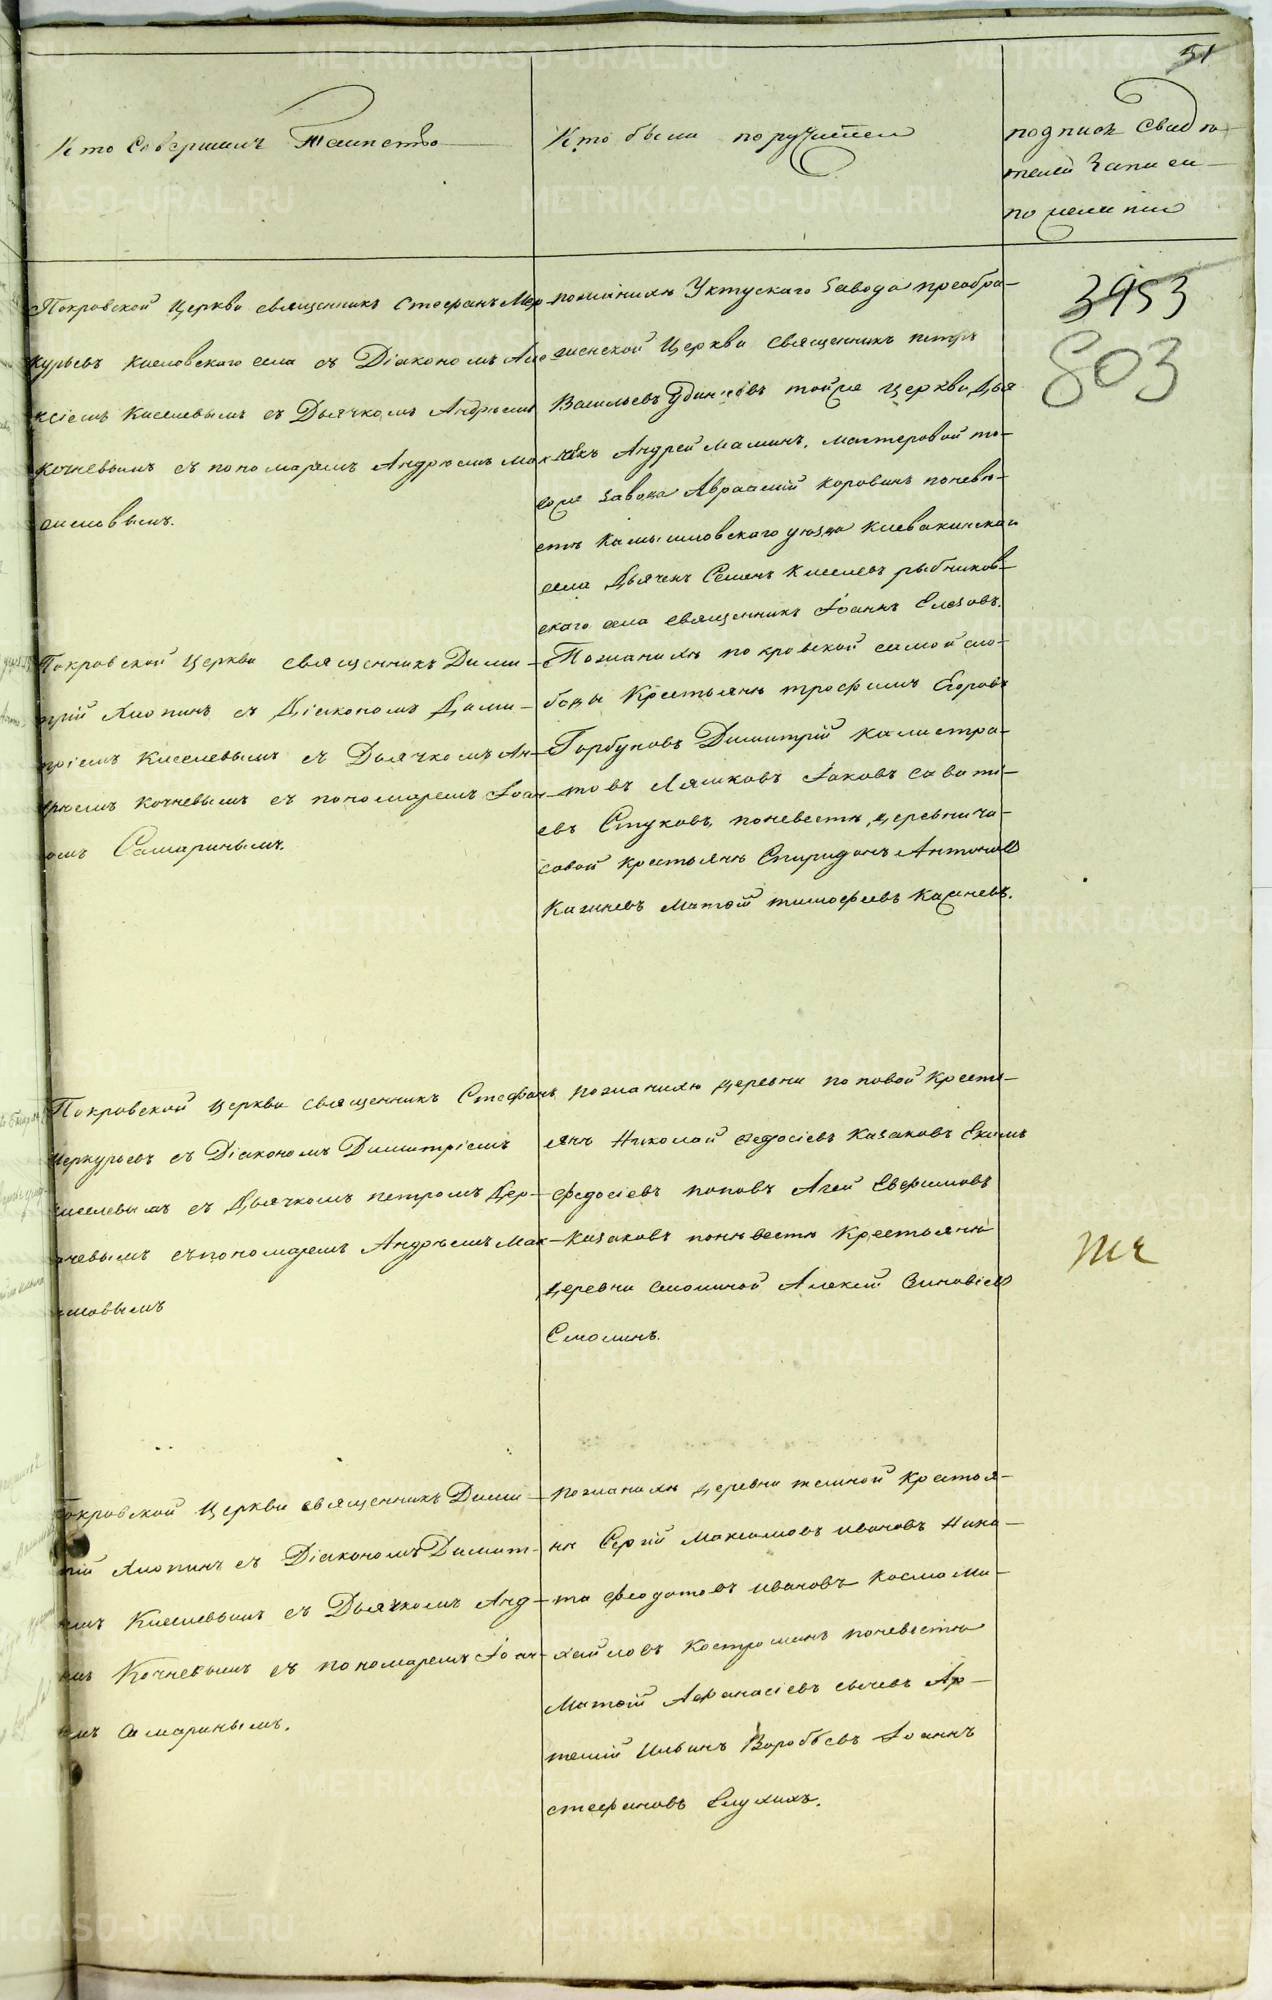 51
Кто Совершалъ Таинство
Кто были поручители
подпись Свидѣ
телей Записи
по желанію
3953
803
Покровской Церкви священникъ Стефанъ Мер
курьевъ Киселовского села съ Діакономъ Але
ксіемъ Киселевымъ съ Дьячкомъ Андреемъ
Кочневымъ съ пономаремъ Андреемъ Мак
симовымъ.
пожениху Уктускаго завода преобра
женской Церкви священникъ петръ
Васильевъ Удинцовъ тойже Церкви Дья
чекъ Андрей Маминъ. мастеровой то
гоже завода Авраамій Коровинъ поневѣ
стѣ Камышловскаго уѣзда Клевакинскаго
села Дьячекъ Семенъ Киселевъ рыбников
скаго села священникъ Іоаннъ Елозовъ.
Покровской Церкви священникъ Дими
трій Хлопинъ съ Діакономъ Дими
тріемъ Киселевымъ съ Дьячкомъ Ан
дреемъ Кочневымъ съ пономаремъ Іоан
омъ Самаринымъ.
Пожениху покровской самой сло
боды Крестьяне трофимъ Егоровъ
Горбуновъ Димитрій Калистра
товъ Ляшковъ Іаковъ Савати
евъ Стуковъ, поневестѣ деревни ча
совой крестьяне Спиридонъ Антоновъ
Качневъ Матѳій тимофеевъ Качневъ.
Покровской Церкви священникъ Стефанъ
Меркурьевъ съ Діакономъ Димитріемъ
Киселевымъ съ Дьячкомъ петромъ Дер
ачевымъ съ пономаремъ Андреемъ Мак
симовымъ
пожениху деревни поповой Крестъ
яне Николай Федосіевъ Казаковъ Екимъ
Федосіевъ поповъ Агей Евфимовъ
Казаковъ поневестѣ Крестьяне
деревни смолиной Алексій Зиновіевъ
Смолинъ.
тч
Покровской Церкви священникъ Дими
трій Хлопинъ съ Діакономъ Димит
ріемъ Киселевымъ съ Дьячкомъ Анд
реемъ Кочневымъ съ пономаремъ Іоан
омъ Самаринымъ.
пожениху деревни темной Крестья
не Сергій Максимовъ ивановъ Ники
та феодотовъ ивановъ Космо Ми
хайловъ Костроминъ поневѣстѣ
Матѳій Афанасіевъ сычевъ Ар
темій Ильинъ Воробьевъ Іоаннъ
стефановъ Елухихъ.